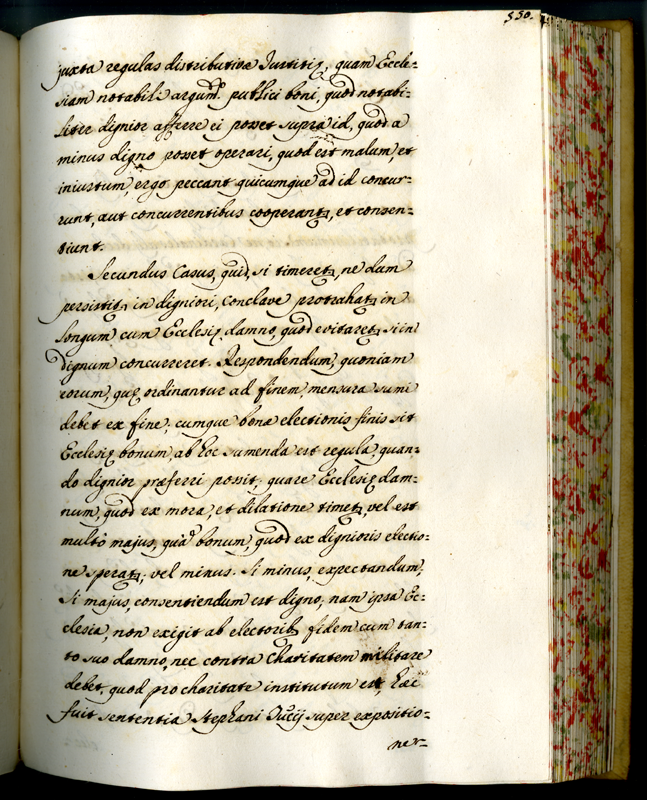 550.
juxta regulas distributivæ Justitię, quam Eccle-
siam notabili argum.ᵗ publici boni, quod notabi-
liter dignior afferre ei posset supra id, quod a
minus digno posset operari, quod est malum, et
iniustum, ergo peccant quicumque ad id concur-
runt, aut concurrentibus cooperantʒ, et consen-
tiunt.
Secundus Casus, quid, si timeretʒ, ne dum
persistitʒ in digniori, Conclave protrahatʒ in
longum cum Ecclesię damno, quod evitaretʒ si in
dignum concurreret. Respondendum, quoniam
eorum, quę ordinantur ad finem, mensura sumi
debet ex fine; cumque bonæ electionis finis sit
Ecclesię bonum, ab hoc sumenda est regula, quan-
do dignior præferri possit, quare Ecclesię dam-
num, quod ex mora, et dilatione timetʒ, vel est
multò majus, quà bonum, quod ex dignioris electio-
ne speratʒ, vel minus. Si minus, expectandum;
Si majus, consentiendum est digno, nam ipsa Ec-
clesia, non exigit ab electoribʒ fidem cum tan-
to suo damno, nec contra Charitatem militare
debet, quod pro charitate institutum est, hæc
fuit sententia Stephani super expositio-
ner-